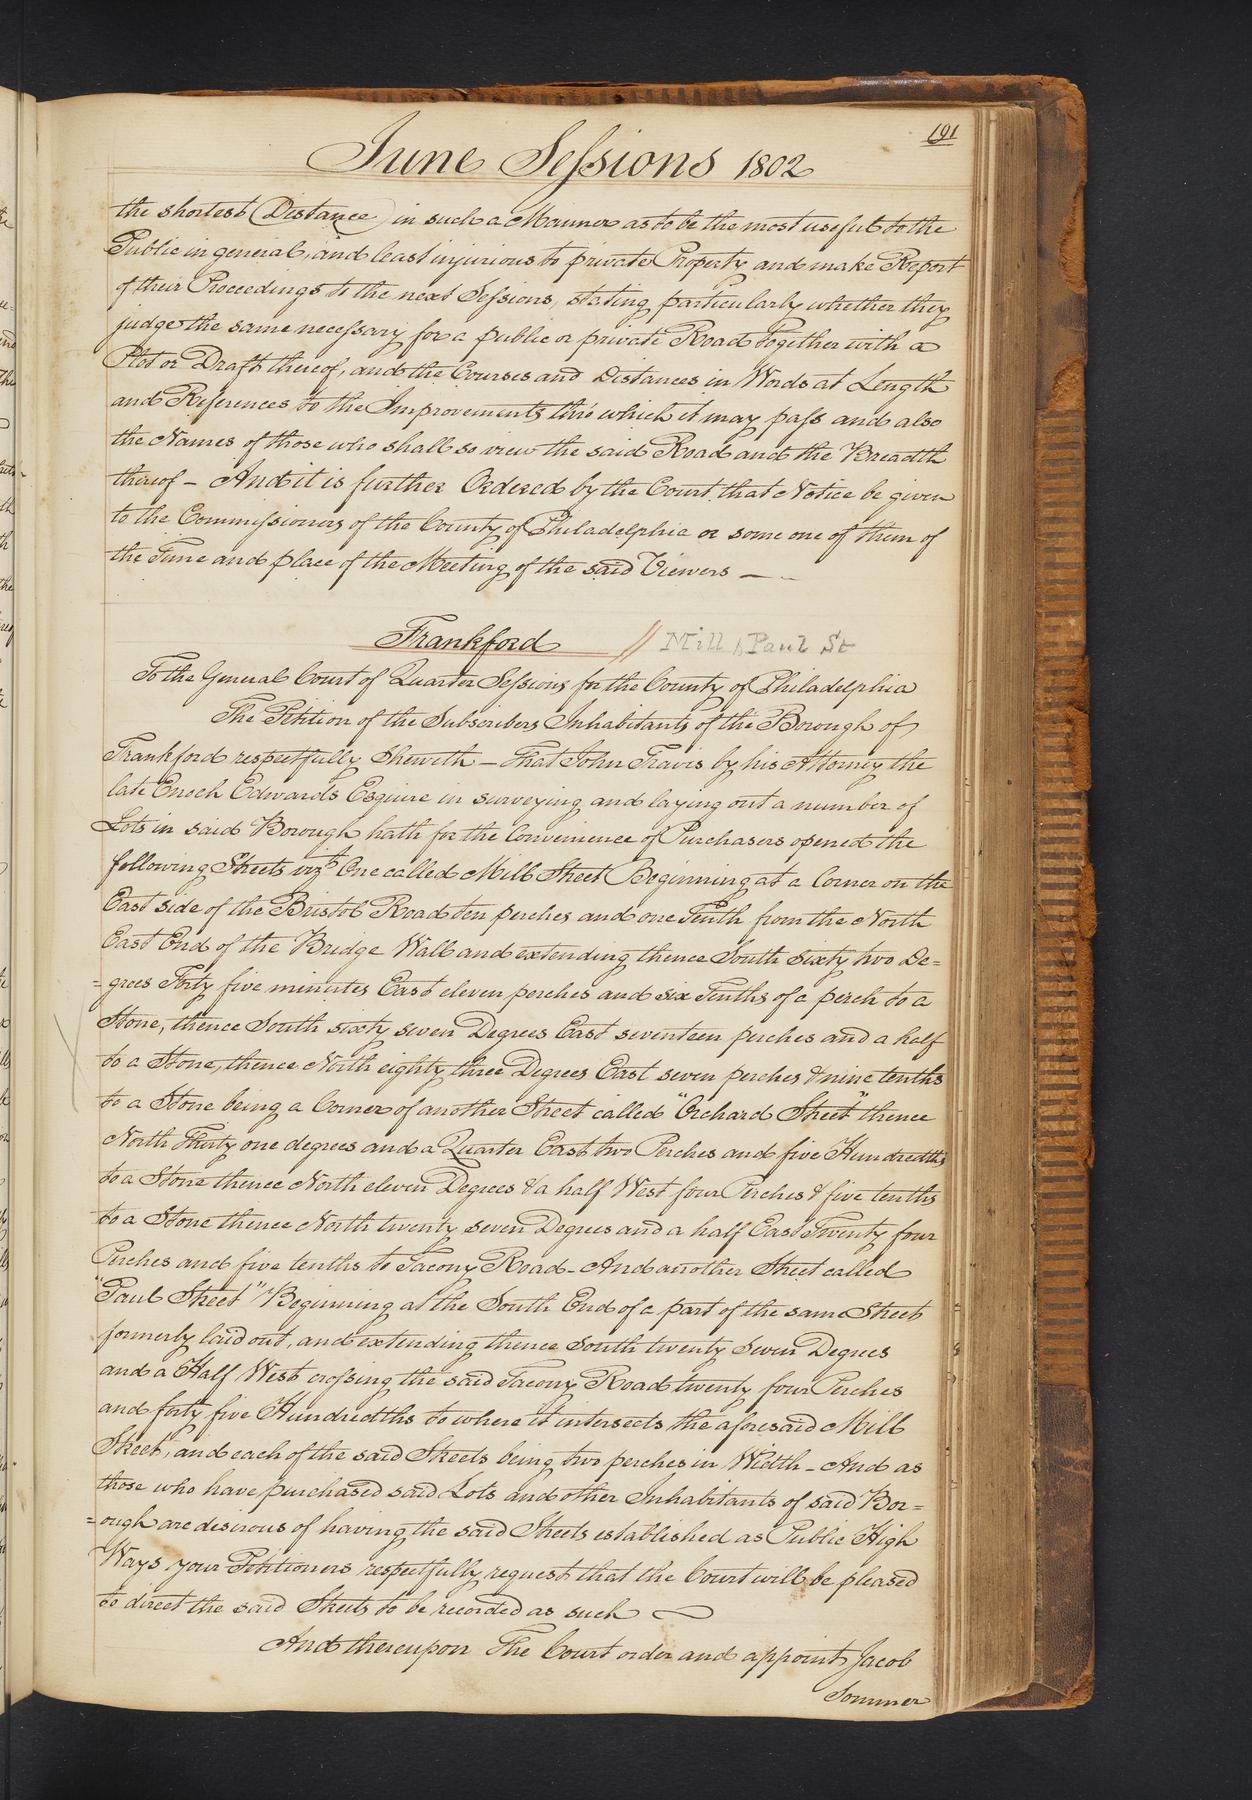 191
June Sessions 1802
the shortest Distance in such a Manner as to be the most useful to the
Public in general, and least injurious to private Property and make Report
of their Proceedings to the next Sessions, stating particularly whether they
judge the same necessary for a public or private Road together with a
Plot or Draft thereof, and the Courses and Distances in Words at Length
and References to the Improvements thro' which it may pass and also
the Names of those who shall so view the said Road and the Breadth
thereof – And it is further Ordered by the Court that Notice be given
to the Commissioners of the County of Philadelphia or some one of them of
the Time and place of the Meeting of the said Viewers —
Frankford // Mill & Paul St
To the General Court of Quarter Sessions for the County of Philadelphia
The Petition of the Subscribers Inhabitants of the Borough of
Frankford respectfully Sheweth – That John Travis by his Attorney the
late Enoch Edwards Esquire in surveying and laying out a number of
Lots in said Borough hath for the Convenience of Purchasers opened the
following Streets vizt One called Mill Street Beginning at a Corner on the
East side of the Bristol Road ten perches and one Tenth from the North
East End of the Bridge Wall and extending thence South sixty two De=
=grees Forty five minutes East eleven perches and six Tenths of a perch to a
Stone, thence South sixty seven Degrees East seventeen perches and a half
to a Stone, thence North eighty three Degrees East seven perches & nine tenths
to a Stone being a Corner of another Street called "Orchard Street" thence
North Thirty one degrees and a Quarter East two Perches and five Hundredths
to a Stone thence North eleven Degrees & a half West four Perches & five tenths
to a Stone thence North twenty seven Degrees and a half East Twenty four
Perches and five tenths to Tacony Road – And another Street called
"Paul Street" Beginning at the South End of a part of the same Street
formerly laid out, and extending thence South twenty Seven Degrees
and a Half West crossing the said Tacony Road twenty four Perches
and forty five Hundredths to where it intersects the aforesaid Mill
Street, and each of the said Streets being two perches in Width – And as
those who have purchased said Lots and other Inhabitants of said Bor=
=ough are desirous of having the said Streets established as Public High
Ways your Petitioners respectfully request that the Court will be pleased
to direct the said Streets to be recorded as such
And thereupon The Court order and appoint Jacob
Sommer